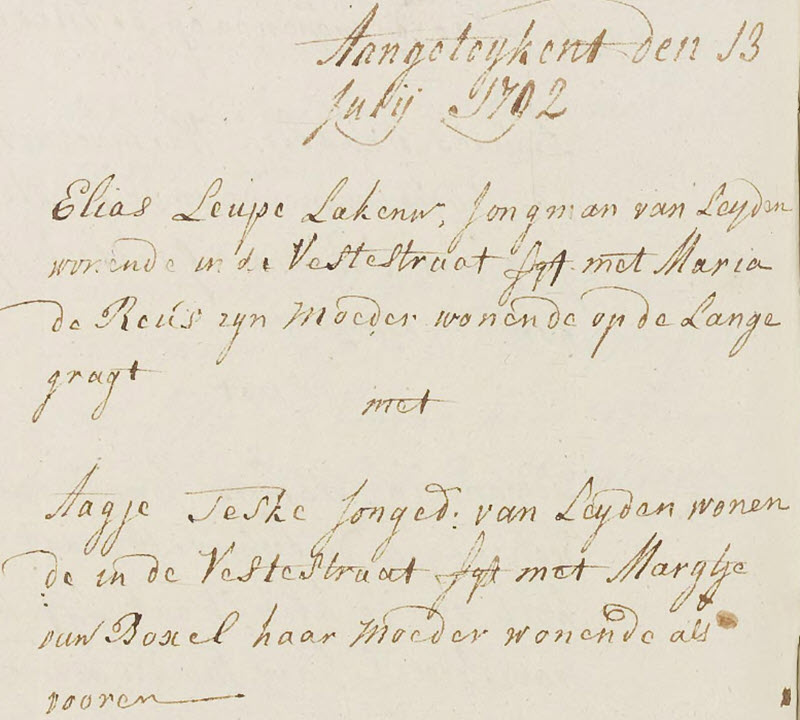 Aangeteykent den 13
Julij 1792
Elias Leupe Lakenw, Jongman van Leyden
wonende in de Vestestraat met Maria
de Reus zyn Moeder wonende op de Lange
gragt
met
Aagje Teske Jonged: van Leyden wonen
de in de Vestestraat met Margtje
van Boxel haar Moeder wonende als
vooren